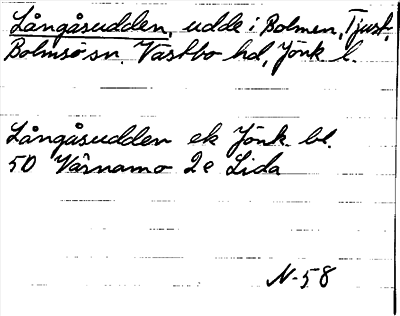 Långåsudden, udde i Bolmen, Tjust,
Bolmsö sn, Västbo hd, Jönk. l.
Långåsudden ek Jönk. bl.
50 Värnamo 2e Lida
N-58